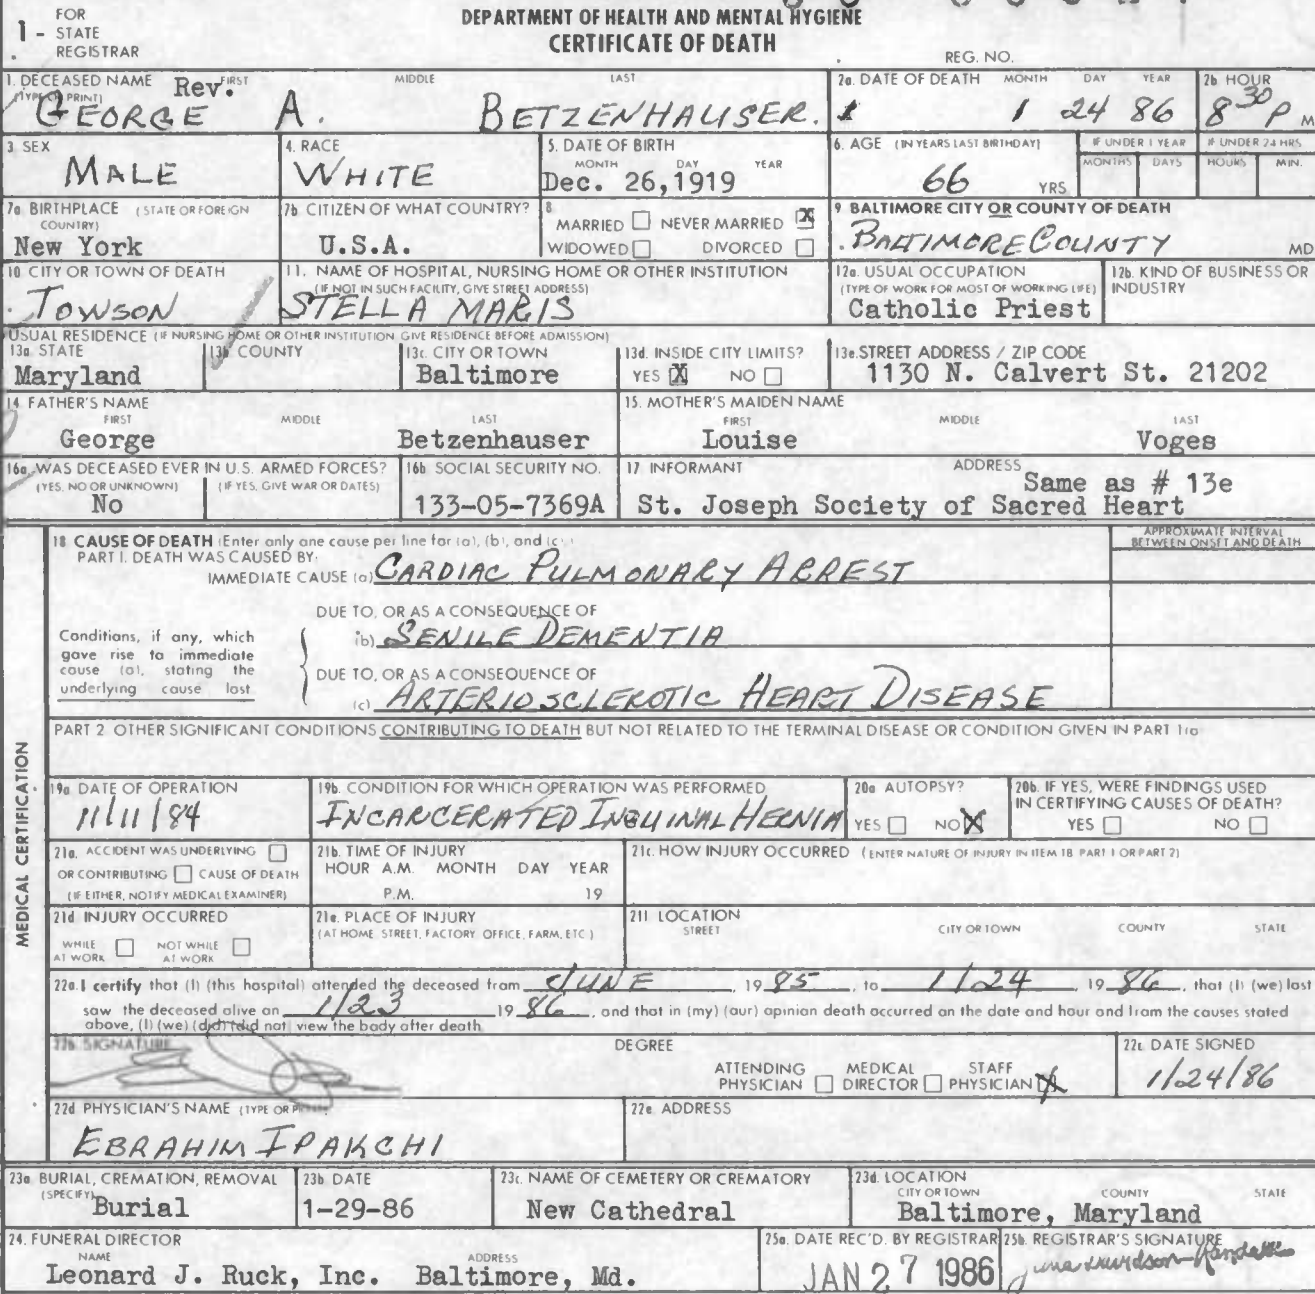 FOR
1 - STATE
REGISTRAR
DEPARTMENT OF HEALTH AND MENTAL HYGIENE
CERTIFICATE OF DEATH
REG. NO.
1. DECEASED NAME FIRST MIDDLE LAST
(TYPE OR PRINT)
Rev. GEORGE A. BETZENHAUSER.
2a. DATE OF DEATH MONTH DAY YEAR
1 24 86
2b HOUR
8 30 P M
3 SEX
MALE
4. RACE
WHITE
5. DATE OF BIRTH
MONTH DAY YEAR
Dec. 26,1919
6. AGE (IN YEARS LAST BIRTHDAY)
66 YRS
IF UNDER 1 YEAR
MONTHS DAYS
IF UNDER 24 HRS
HOURS MIN.
7a BIRTHPLACE (STATE OR FOREIGN
COUNTRY)
New York
7b CITIZEN OF WHAT COUNTRY?
U.S.A.
8
MARRIED NEVER MARRIED X
WIDOWED DIVORCED
9 BALTIMORE CITY OR COUNTY OF DEATH
BALTIMORE COUNTY MD
10 CITY OR TOWN OF DEATH
TOWSON
11. NAME OF HOSPITAL, NURSING HOME OR OTHER INSTITUTION
(IF NOT IN SUCH FACILITY, GIVE STREET ADDRESS)
STELLA MARIS
12a. USUAL OCCUPATION
(TYPE OF WORK FOR MOST OF WORKING LIFE)
Catholic Priest
12b. KIND OF BUSINESS OR
INDUSTRY
USUAL RESIDENCE (IF NURSING HOME OR OTHER INSTITUTION GIVE RESIDENCE BEFORE ADMISSION)
13a. STATE
Maryland
13b COUNTY
13c. CITY OR TOWN
Baltimore
13d. INSIDE CITY LIMITS?
YES X NO
13e. STREET ADDRESS / ZIP CODE
1130 N. Calvert St. 21202
14 FATHER'S NAME
FIRST MIDDLE LAST
George Betzenhauser
15. MOTHER'S MAIDEN NAME
FIRST MIDDLE LAST
Louise Voges
16a. WAS DECEASED EVER IN U.S. ARMED FORCES?
(YES, NO OR UNKNOWN) (IF YES, GIVE WAR OR DATES)
No
16b SOCIAL SECURITY NO.
133-05-7369A
17 INFORMANT ADDRESS
Same as # 13e
St. Joseph Society of Sacred Heart
MEDICAL CERTIFICATION
18 CAUSE OF DEATH (Enter only one cause per line for (a), (b), and (c).)
PART I. DEATH WAS CAUSED BY:
APPROXIMATE INTERVAL
BETWEEN ONSET AND DEATH
IMMEDIATE CAUSE (a) CARDIAC PULMONARY ARREST
DUE TO, OR AS A CONSEQUENCE OF
(b) SENILE DEMENTIA
DUE TO, OR AS A CONSEQUENCE OF
(c) ARTERIOSCLEROTIC HEART DISEASE
Conditions, if any, which
gave rise to immediate
cause (a), stating the
underlying cause last
PART 2 OTHER SIGNIFICANT CONDITIONS CONTRIBUTING TO DEATH BUT NOT RELATED TO THE TERMINAL DISEASE OR CONDITION GIVEN IN PART 1(a)
19a DATE OF OPERATION
11/11/84
19b. CONDITION FOR WHICH OPERATION WAS PERFORMED
INCARCERATED INGUINAL HERNIA
20a AUTOPSY?
YES NO X
20b. IF YES, WERE FINDINGS USED
IN CERTIFYING CAUSES OF DEATH?
YES NO
21a. ACCIDENT WAS UNDERLYING
OR CONTRIBUTING CAUSE OF DEATH
(IF EITHER, NOTIFY MEDICAL EXAMINER)
21b. TIME OF INJURY
HOUR A.M. MONTH DAY YEAR
P.M. 19
21c. HOW INJURY OCCURRED (ENTER NATURE OF INJURY IN ITEM 18 PART 1 OR PART 2)
21d INJURY OCCURRED
WHILE AT WORK NOT WHILE AT WORK
21e. PLACE OF INJURY
(AT HOME, STREET, FACTORY, OFFICE, FARM, ETC)
21f LOCATION
STREET CITY OR TOWN COUNTY STATE
22a. I certify that (I) (this hospital) attended the deceased from JUNE, 19 85, to 1/24, 19 86, that (I) (we) last
saw the deceased alive on 1/23 19 86, and that in (my) (our) opinion death occurred on the date and hour and from the causes stated
above, (I) (we) (did) (did not) view the body after death
22b SIGNATURE DEGREE
ATTENDING PHYSICIAN MEDICAL DIRECTOR STAFF PHYSICIAN X
22c. DATE SIGNED
1/24/86
22d PHYSICIAN'S NAME (TYPE OR PRINT)
EBRAHIM IPAKCHI
22e ADDRESS
23a BURIAL, CREMATION, REMOVAL
(SPECIFY)
Burial
23b DATE
1-29-86
23c. NAME OF CEMETERY OR CREMATORY
New Cathedral
23d. LOCATION
CITY OR TOWN COUNTY STATE
Baltimore, Maryland
24. FUNERAL DIRECTOR
NAME ADDRESS
Leonard J. Ruck, Inc. Baltimore, Md.
25a. DATE REC'D. BY REGISTRAR
JAN 27 1986
25b. REGISTRAR'S SIGNATURE